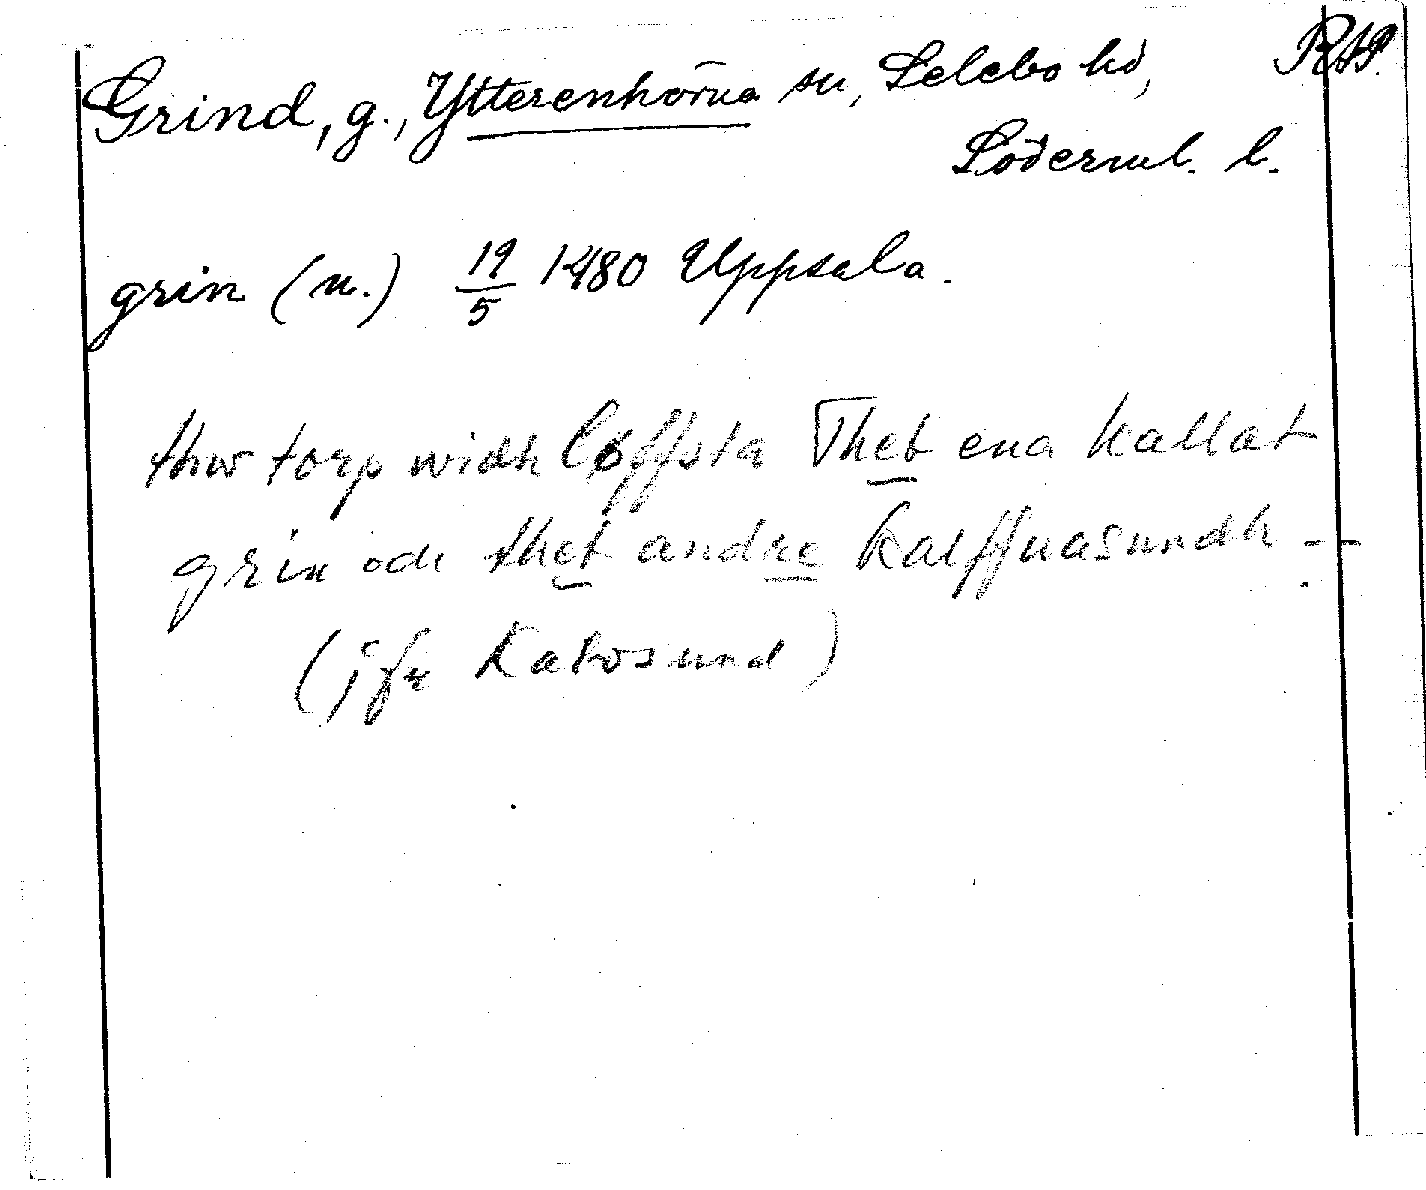 Grind, g., Ytterenhörna sn, Selebo hd, RAP.
Söderml. l.
grin (n.) 19/5 1480 Uppsala.
thw torp widh løffsta Thet ena kallat
grin och thet andre kalffuasundh –
(jfr Kalvsund)